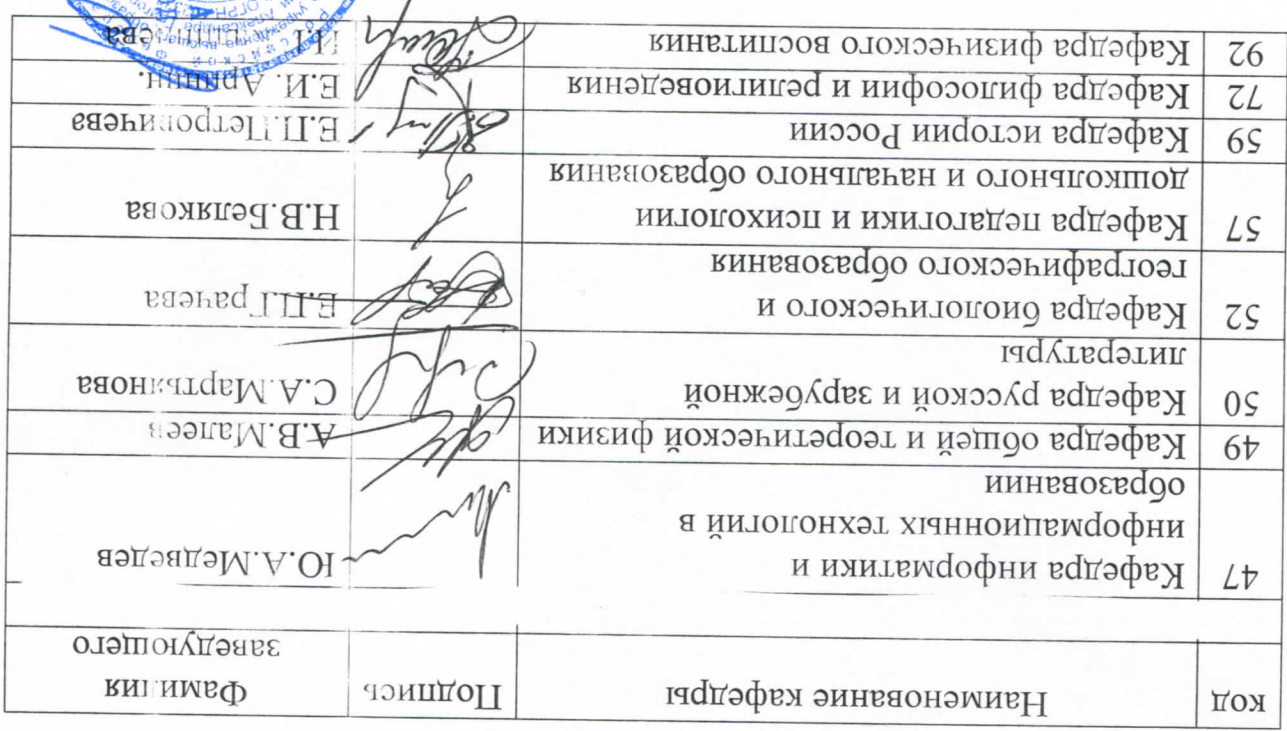 код Наименование кафедры Подпись Фамилия
заведующего
47 Кафедра информатики и
информационных технологий в
образовании Ю.А.Медведев
49 Кафедра общей и теоретической физики А.В.Малеев
50 Кафедра русской и зарубежной
литературы С.А.Мартьянова
52 Кафедра биологического и
географического образования Е.П.Грачева
57 Кафедра педагогики и психологии
дошкольного и начального образования Н.В.Белякова
59 Кафедра истории России Е.П.Петровичева
72 Кафедра философии и религиоведения Е.И. Аринин.
92 Кафедра физического воспитания